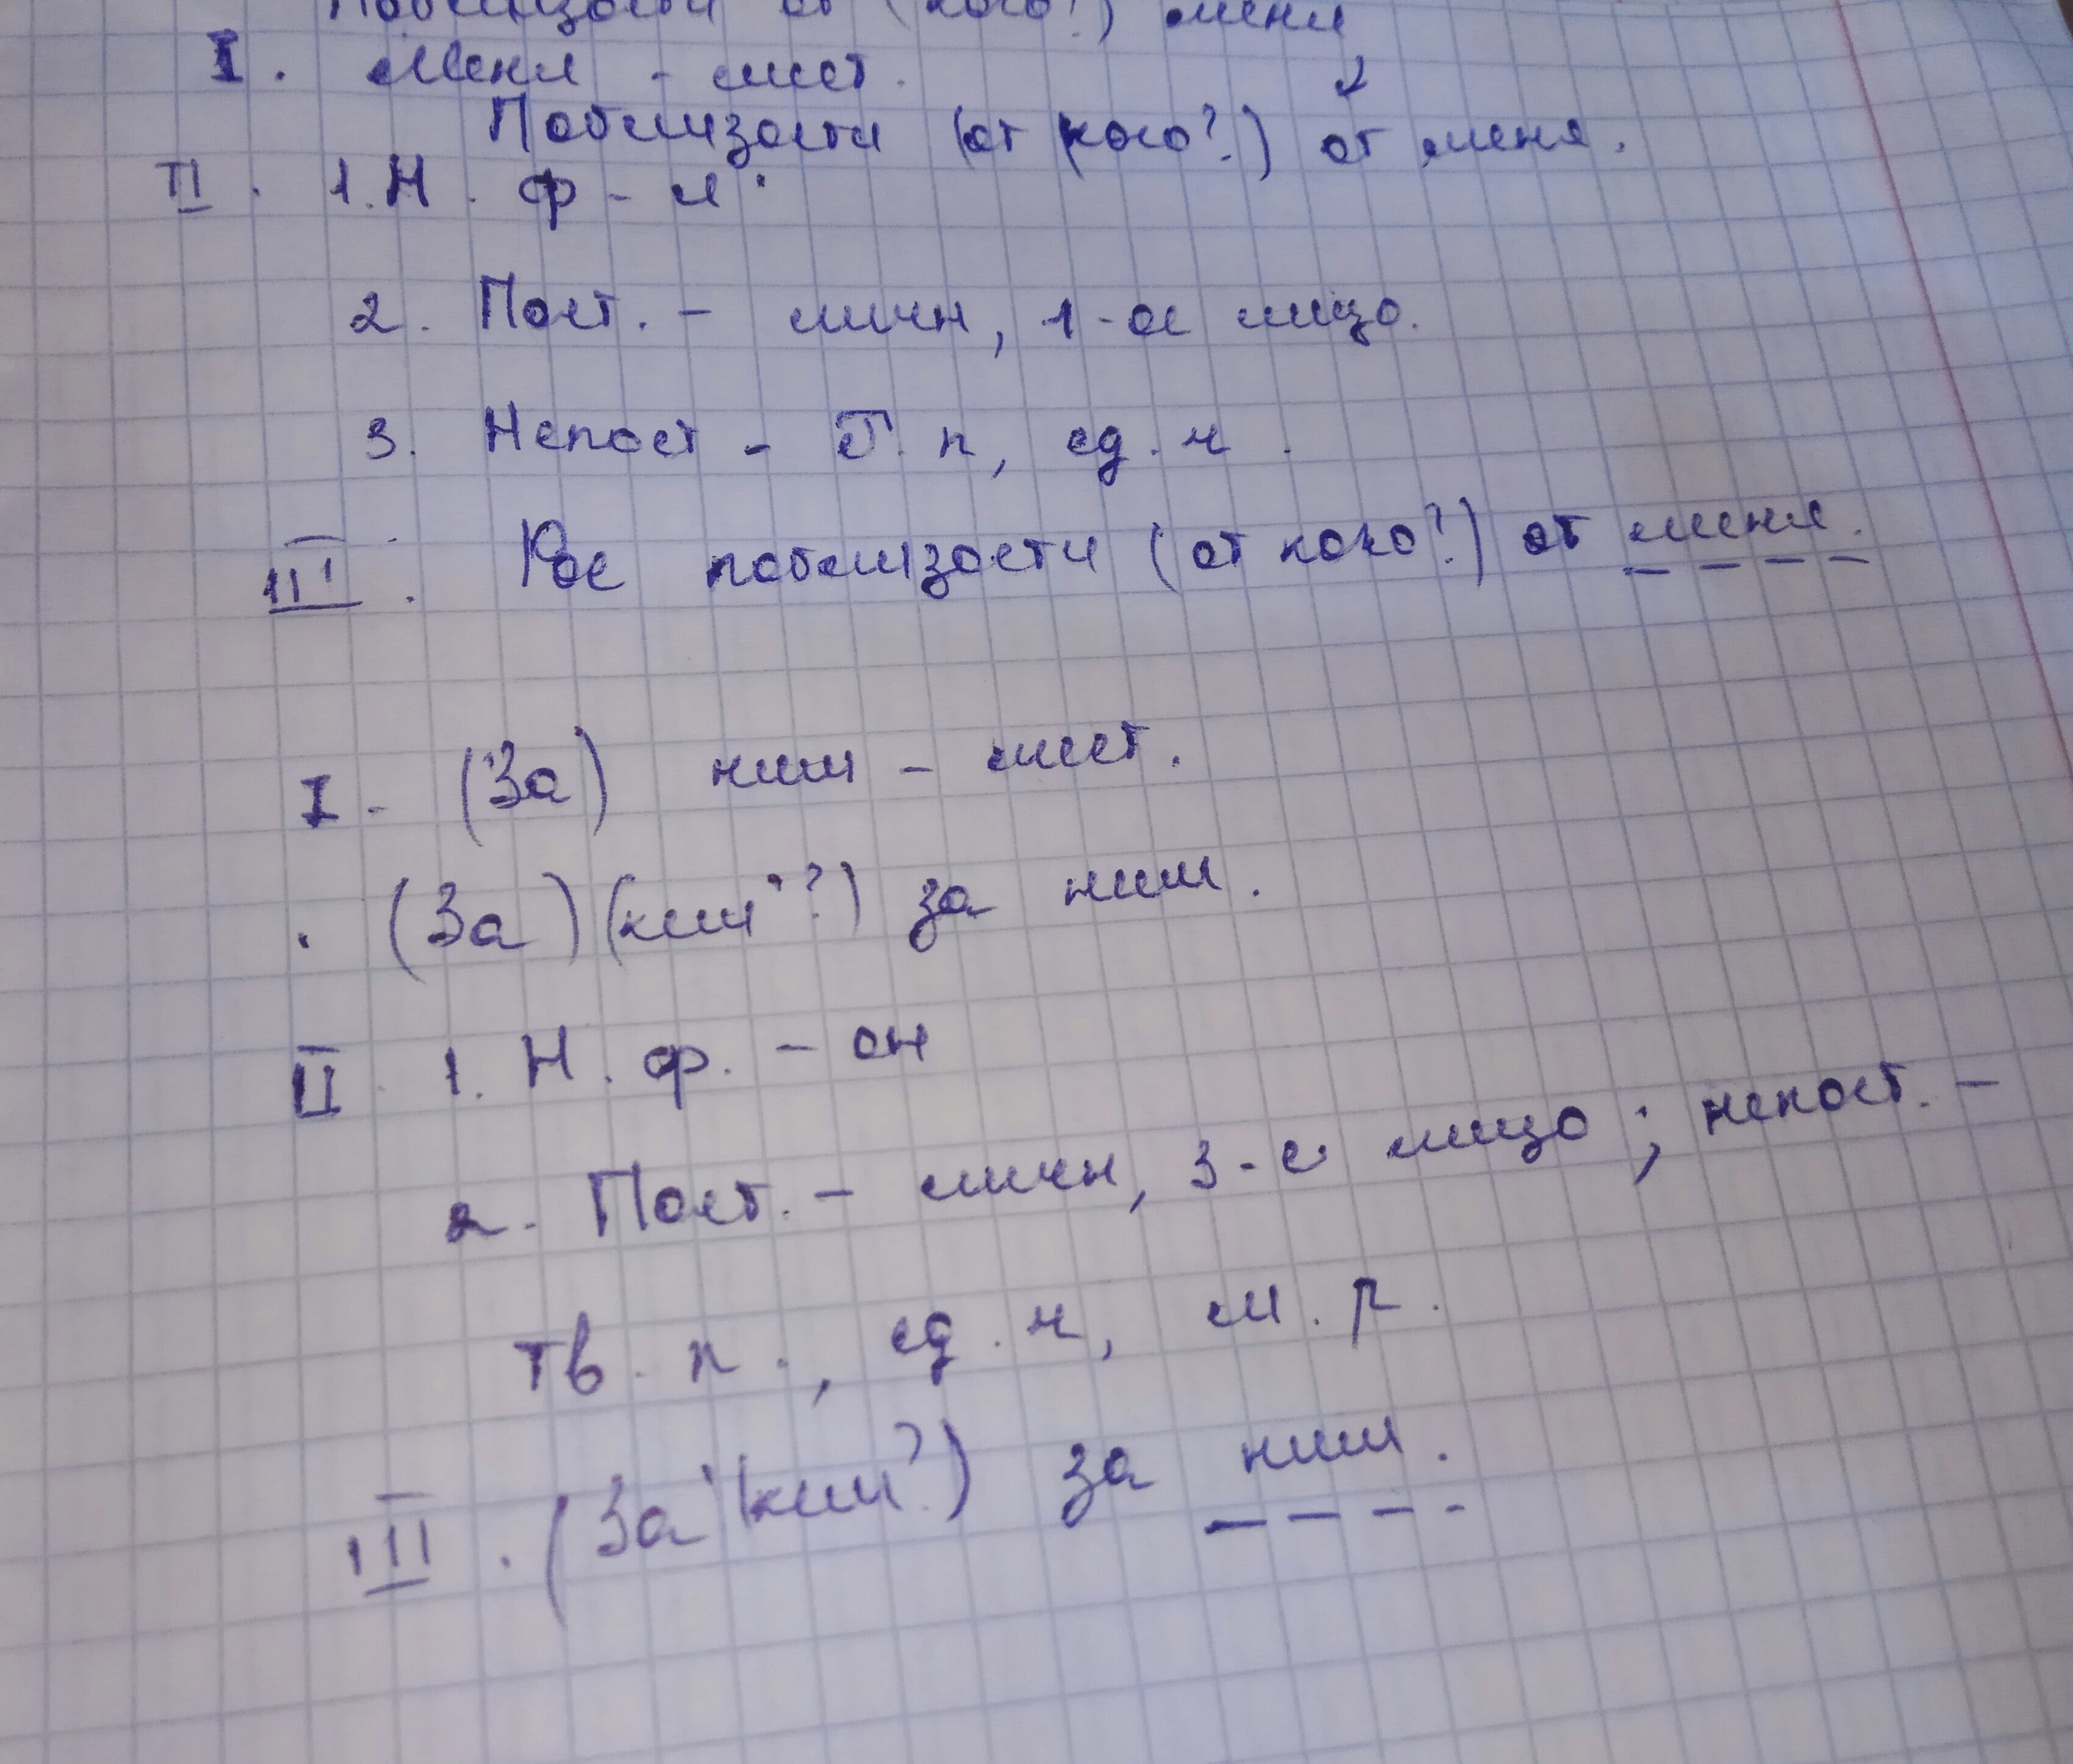 Поблизости от (кого?) меня
I. Меня - мест.
Поблизости (от кого?) от меня.
II. 1. Н. ф - я.
2. Пост. - личн, 1-ое лицо.
3. Непост - Р. п, ед. ч.
III. Рос поблизости (от кого?) от меня.
I. (За) ним - мест.
. (За) (ким?) за ним.
II. 1. Н. ф. - он
2. Пост. - личн, 3-е лицо; непост. -
тв. п., ед. ч, м. р.
III. (За (ким?) за ним.